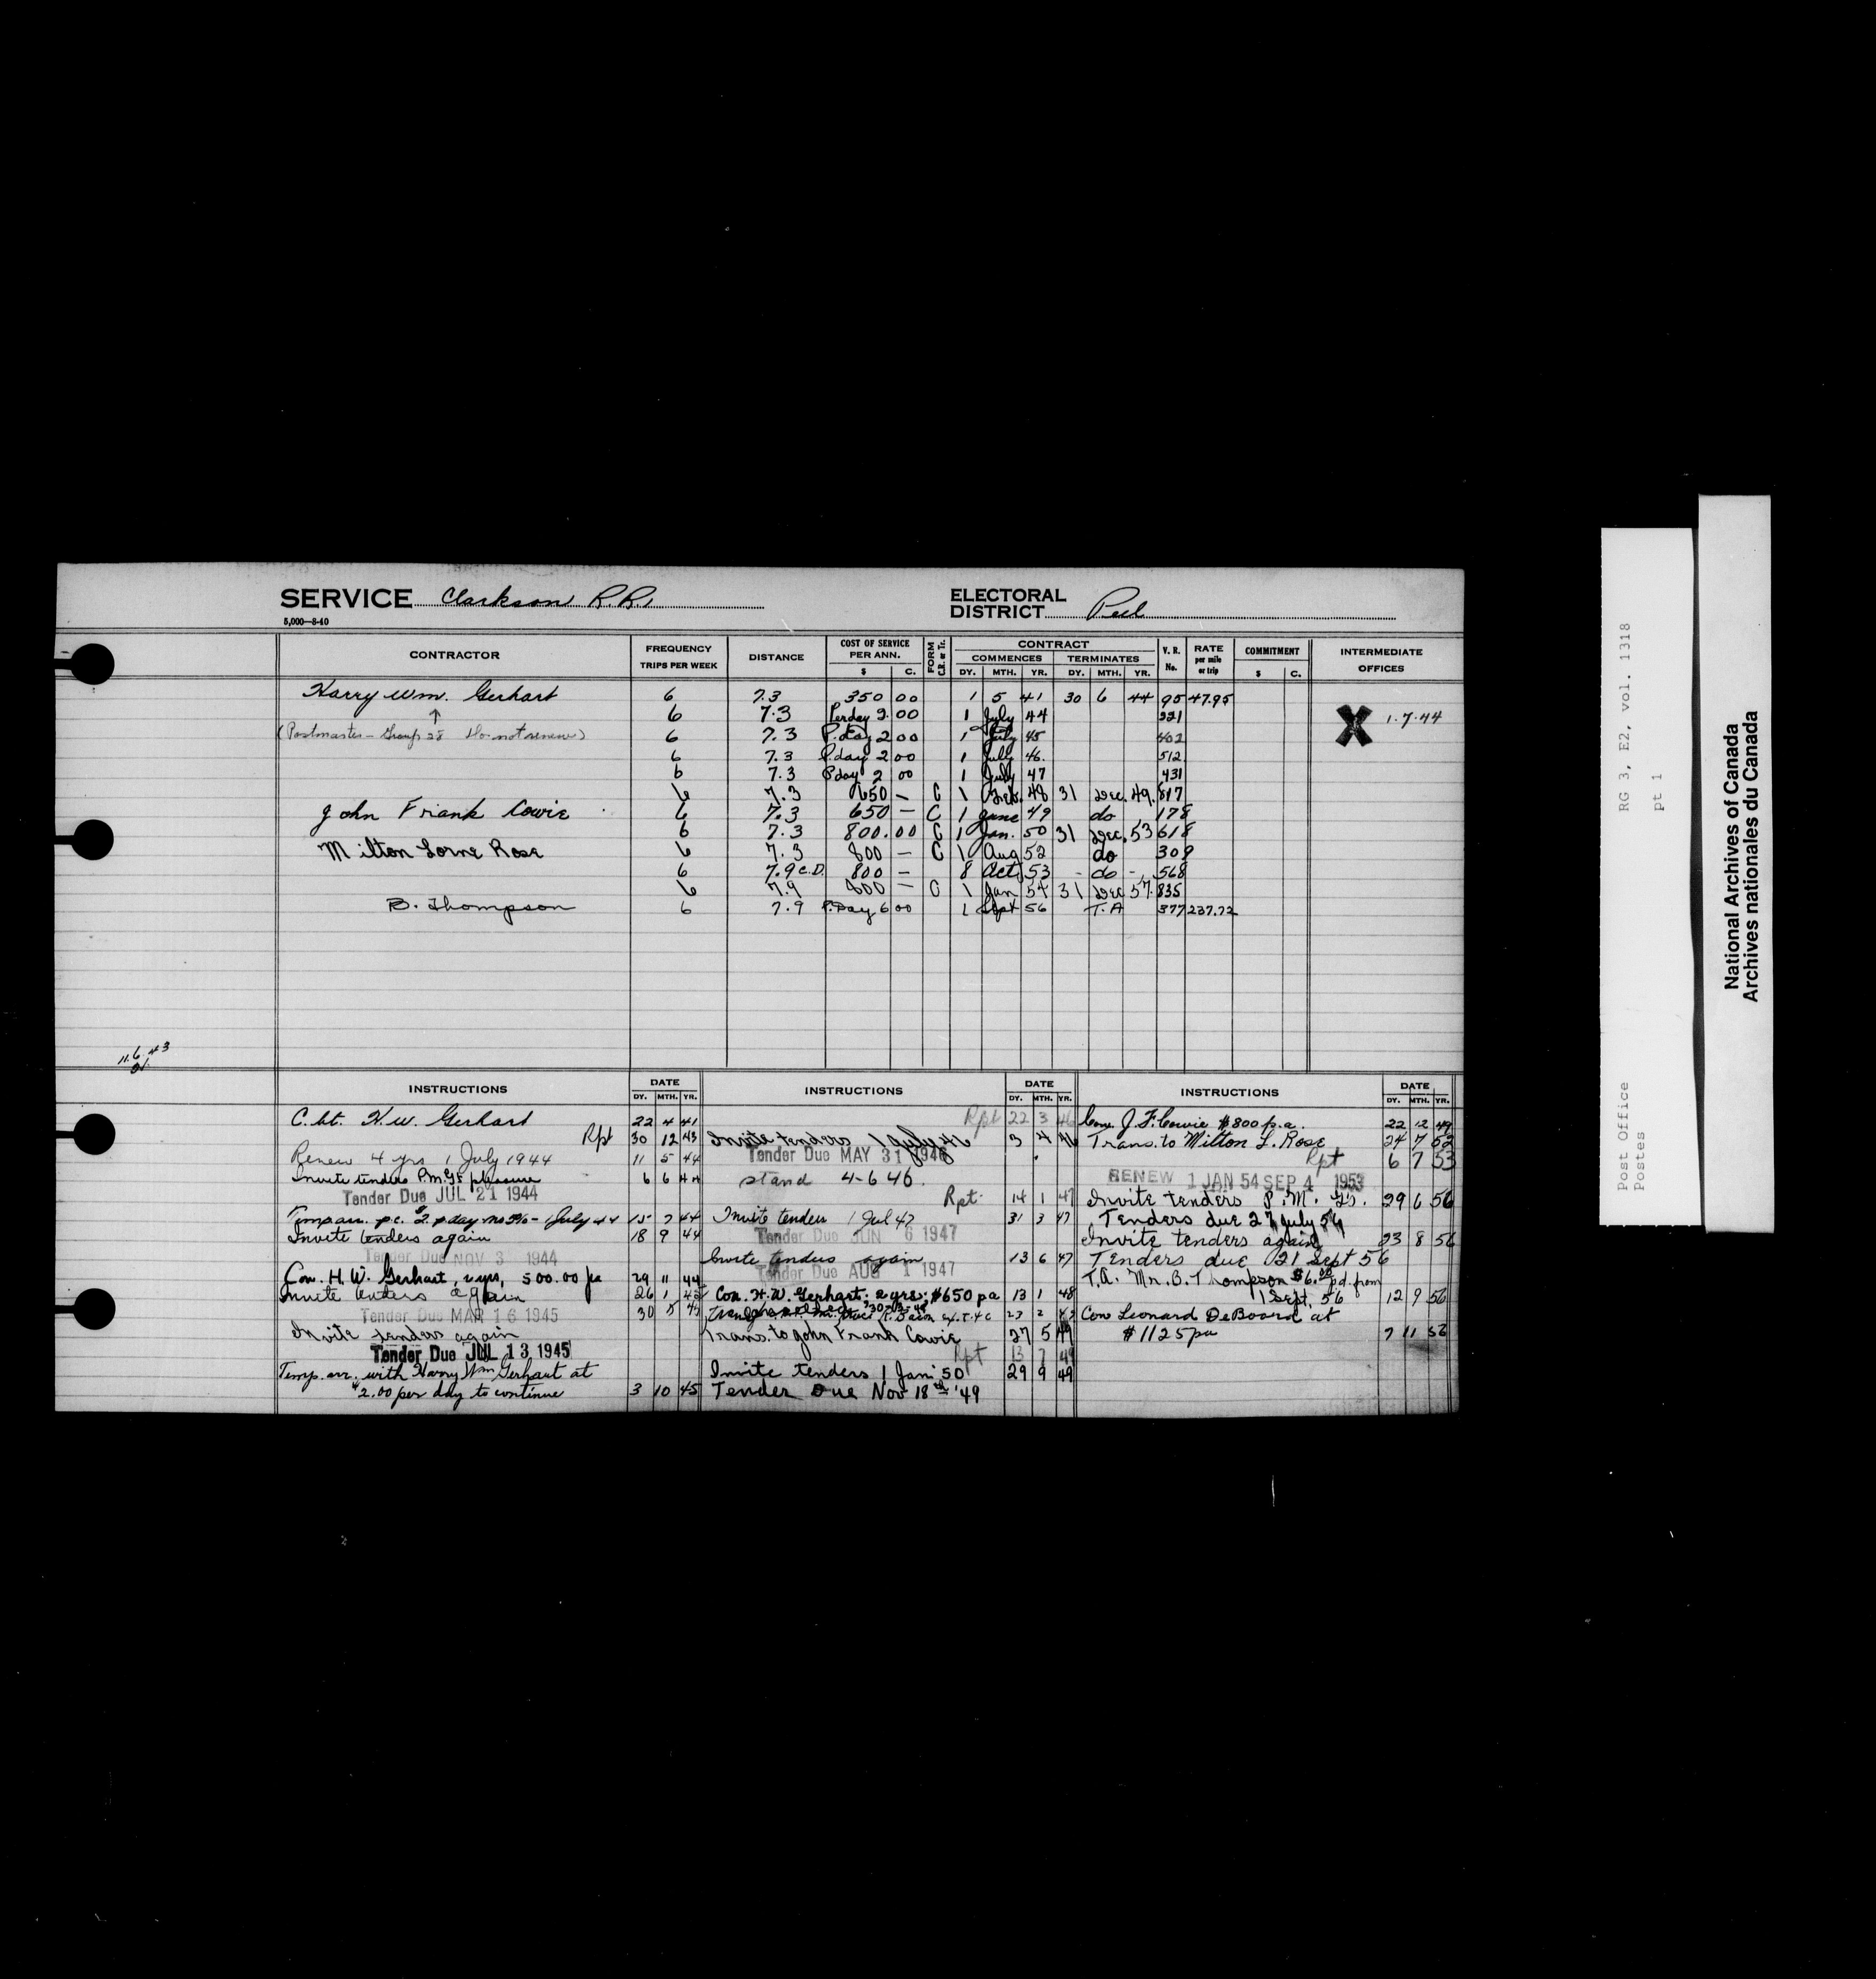 SERVICE Clarkson R.R.1
ELECTORAL DISTRICT Peel
5,000—8-40
CONTRACTOR FREQUENCY TRIPS PER WEEK DISTANCE COST OF SERVICE PER ANN. $ C. FORM C.R. or Tr. CONTRACT COMMENCES DY. MTH. YR. TERMINATES DY. MTH. YR. V. R. No. RATE per mile or trip COMMITMENT $ C. INTERMEDIATE OFFICES
Harry Wm. Gerhart 6 7.3 350 00 1 5 41 30 6 44 95 47.95
↑ 6 7.3 Per day 2.00 1 July 44 221 X 1.7.44
(Postmaster - Group 28 Do not renew) 6 7.3 P. day 2 00 1 July 45 402
6 7.3 P. day 2 00 1 July 46. 512
6 7.3 P day 2 00 1 July 47 431
6 7.3 650 — C 1 Feb. 48 31 Dec. 49. 817
John Frank Cowie 6 7.3 650 — C 1 June 49 do 178
6 7.3 800.00 C 1 Jan. 50 31 Dec. 53 618
Milton Lorne Rose 6 7.3 800 — C 1 Aug 52 do 309
6 7.9 C.D. 800 — 8 Oct 53 - do - 568
6 7.9 800 — C 1 Jan 54 31 Dec 57. 835
B. Thompson 6 7.9 P. Day 6 00 1 Sept 56 T.A 377 237.72
11.6.43
INSTRUCTIONS DATE DY. MTH. YR.
C. ht. H. W. Gerhart 22 4 41
Rpt 30 12 43
Renew 4 yrs 1 July 1944 11 5 44
Invite tenders P.M.G's pleasure 6 6 44
Tender Due JUL 21 1944
Temp arr. p.c. $2. p day no 5% - 1 July 44 15 7 44
Invite tenders again 18 9 44
Tender Due NOV 3 1944
Con. H. W. Gerhart, 2 yrs, 500.00 pa 29 11 44
Invite tenders again 26 1 45
Tender Due MAR 16 1945 30 5 45
Invite tenders again
Tender Due JUL 13 1945
Temp. arr. with Harry Wm Gerhart at
$2.00 per day to continue 3 10 45
INSTRUCTIONS DATE DY. MTH. YR.
Rpt 22 3 46
Invite tenders 1 July 46 3 4 46
Tender Due MAY 31 1946
stand 4-6 46.
Rpt. 14 1 47
Invite tenders 1 Jul 47 31 3 47
Tender Due JUN 6 1947
Invite tenders again 13 6 47
Tender Due AUG 1 1947
Con. H. W. Gerhart: 2 yrs; $650 pa 13 1 48
Trans. to John Frank Cowie 27 5 49
Rpt 13 7 49
Invite tenders 1 Jan' 50 29 9 49
Tender Due Nov 18th '49
INSTRUCTIONS DATE DY. MTH. YR.
Con. J. F. Cowie $800 p.a. 22 12 49
Trans. to Milton L. Rose 24 7 52
Rpt 6 7 53
RENEW 1 JAN 54 SEP 4 1953
Invite tenders P. M. G's. 29 6 56
Tenders due 27 July 56
Invite tenders again 23 8 56
Tenders due 21 Sept 56
T.A. Mr. B. Thompson $6.00 p.d. from
1 Sept. 56 12 9 56
Con Leonard DeBoard at
$1125 pa 7 11 56
Post Office RG 3, E2, vol. 1318
Postes pt 1
National Archives of Canada
Archives nationales du Canada